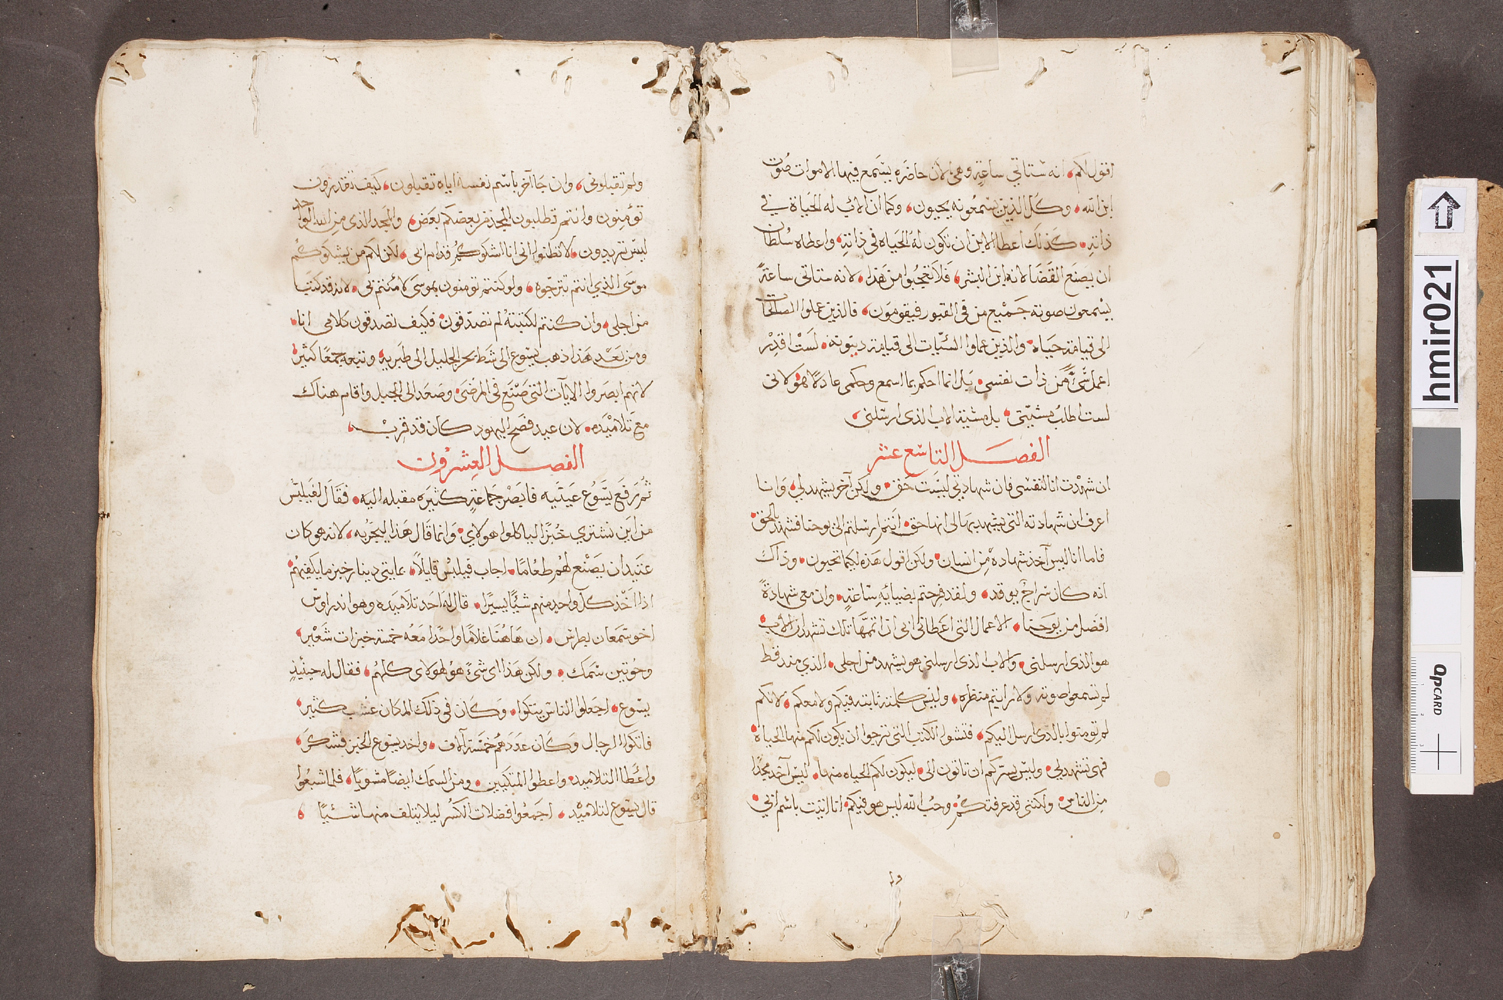 اقول لكم انه ستاتي ساعة وهي الان حاضرة يسمع فيها الاموات صوت
ابن الله وكل الذين يسمعونه يحيون وكما ان الاب له الحياة في
ذاته كذلك اعطا الابن ان تكون له الحياه في ذاته واعطاه سلطان
ان يصنع القضا لانه ابن البشر فلا تعجبوا من هذا لانه ستاتي ساعة
يسمعون صوته جميع من في القبور فيقومون فالذين عملوا الصالحات
الى قيامة حياة والذين عملوا السيات الى قيامة دينونه لست اقدر
اعمل شي من ذات نفسي بل انما احكم بما اسمع وحكمي عادلا هو لاني
لست اطلب مشيتي بل مشية الاب الذي ارسلني
الفصل التاسع عشر
ان شهدت انا لنفسي فان شهادتي ليست حق ولكن آخر يشهد لي وانا
اعرف ان شهادته التي يشهد بها لي انها حق انتم ارسلتم الى يوحنا فشهد بالحق
فاما انا ليس آخذ شهاده من انسان ولكن اقول هذه لكيما تحيون وذاك
انه كان سراج يوقد ولقد فرحتم بضيايه ساعة وان معي شهادة
افضل من يوحنا الاعمال التي اعطاني ابي ان اتمها تلك تشهد ان الاب
هو الذي ارسلني والاب الذي ارسلني هو يشهد من اجلي الذي منذ قط
لم تسمعوا صوته ولا رايتم منظره وليس كلمته ثابته فيكم ولا معكم لانكم
لم تومنوا بالذي ارسل اليكم فتشوا الكتب التي ترجوا ان يكون لكم منها الحياة
فهي تشهد لي وليس يسركم ان تاتون الي ليكون لكم الحياه منها ليس آخذ مجدا
من الناس ولكنني قد عرفتكم وحب الله ليس هو فيكم انا اتيت باسم ابي
ولم تقبلوني وان جا آخر باسم نفسه اياه تقبلون كيف تقدرون
تومنون وانتم تطلبون المجد من بعضكم بعض والمجد الذي من الله الواحد
ليس تريدون لا تظنوا اني انا اشكوكم قدام ابي لان لكم من يشكوكم
موسى الذي انتم تترجوه ولو كنتم تومنون بموسى لامنتم بي لانه قد كتب
من اجلي وان كنتم لكتبته لم تصدقون فكيف تصدقون كلامي انا
ومن بعد هذا ذهب يسوع الى شط بحر الجليل الى طبريه وتبعه جمعا كثيرا
لانهم ابصروا الايات التي صنع في المرضى وصعد الى الجبل واقام هناك
مع تلاميذه لان عيد فصح اليهود كان قد قرب
الفصل العشرون
ثم رفع يسوع عينيه فابصر جماعة كثيره مقبله اليه فقال لفيلبس
من اين نشتري خبزا لياكلوا هولاي وانما قال هذا ليجربه لانه هو كان
عتيدا ان يصنع لهم طعاما اجاب فيلبس قايلا مايتي دينار خبز ما يكفيهم
اذا اخذ كل واحد منهم شيا يسيرا قال له احد تلاميذه وهو اندراوس
اخو سمعان بطرس ان هاهنا غلاما واحدا معه خمسة خبزات شعير
وحوتين سمك ولكن هذا اي شيء هو لهولاي كلهم فقال له حينيذ
يسوع اجعلوا الناس يتكوا وكان في ذلك المكان عشب كثير
فاتكوا الرجال وكان عددهم خمسة آلاف واخذ يسوع الخبز فشكر
واعطا التلاميذ واعطوا المتكيين ومن السمك ايضا مشويا فلما شبعوا
قال يسوع لتلاميذه اجمعوا فضلات الكسر ليلا يتلف منها شيا
hmir021
QPCARD